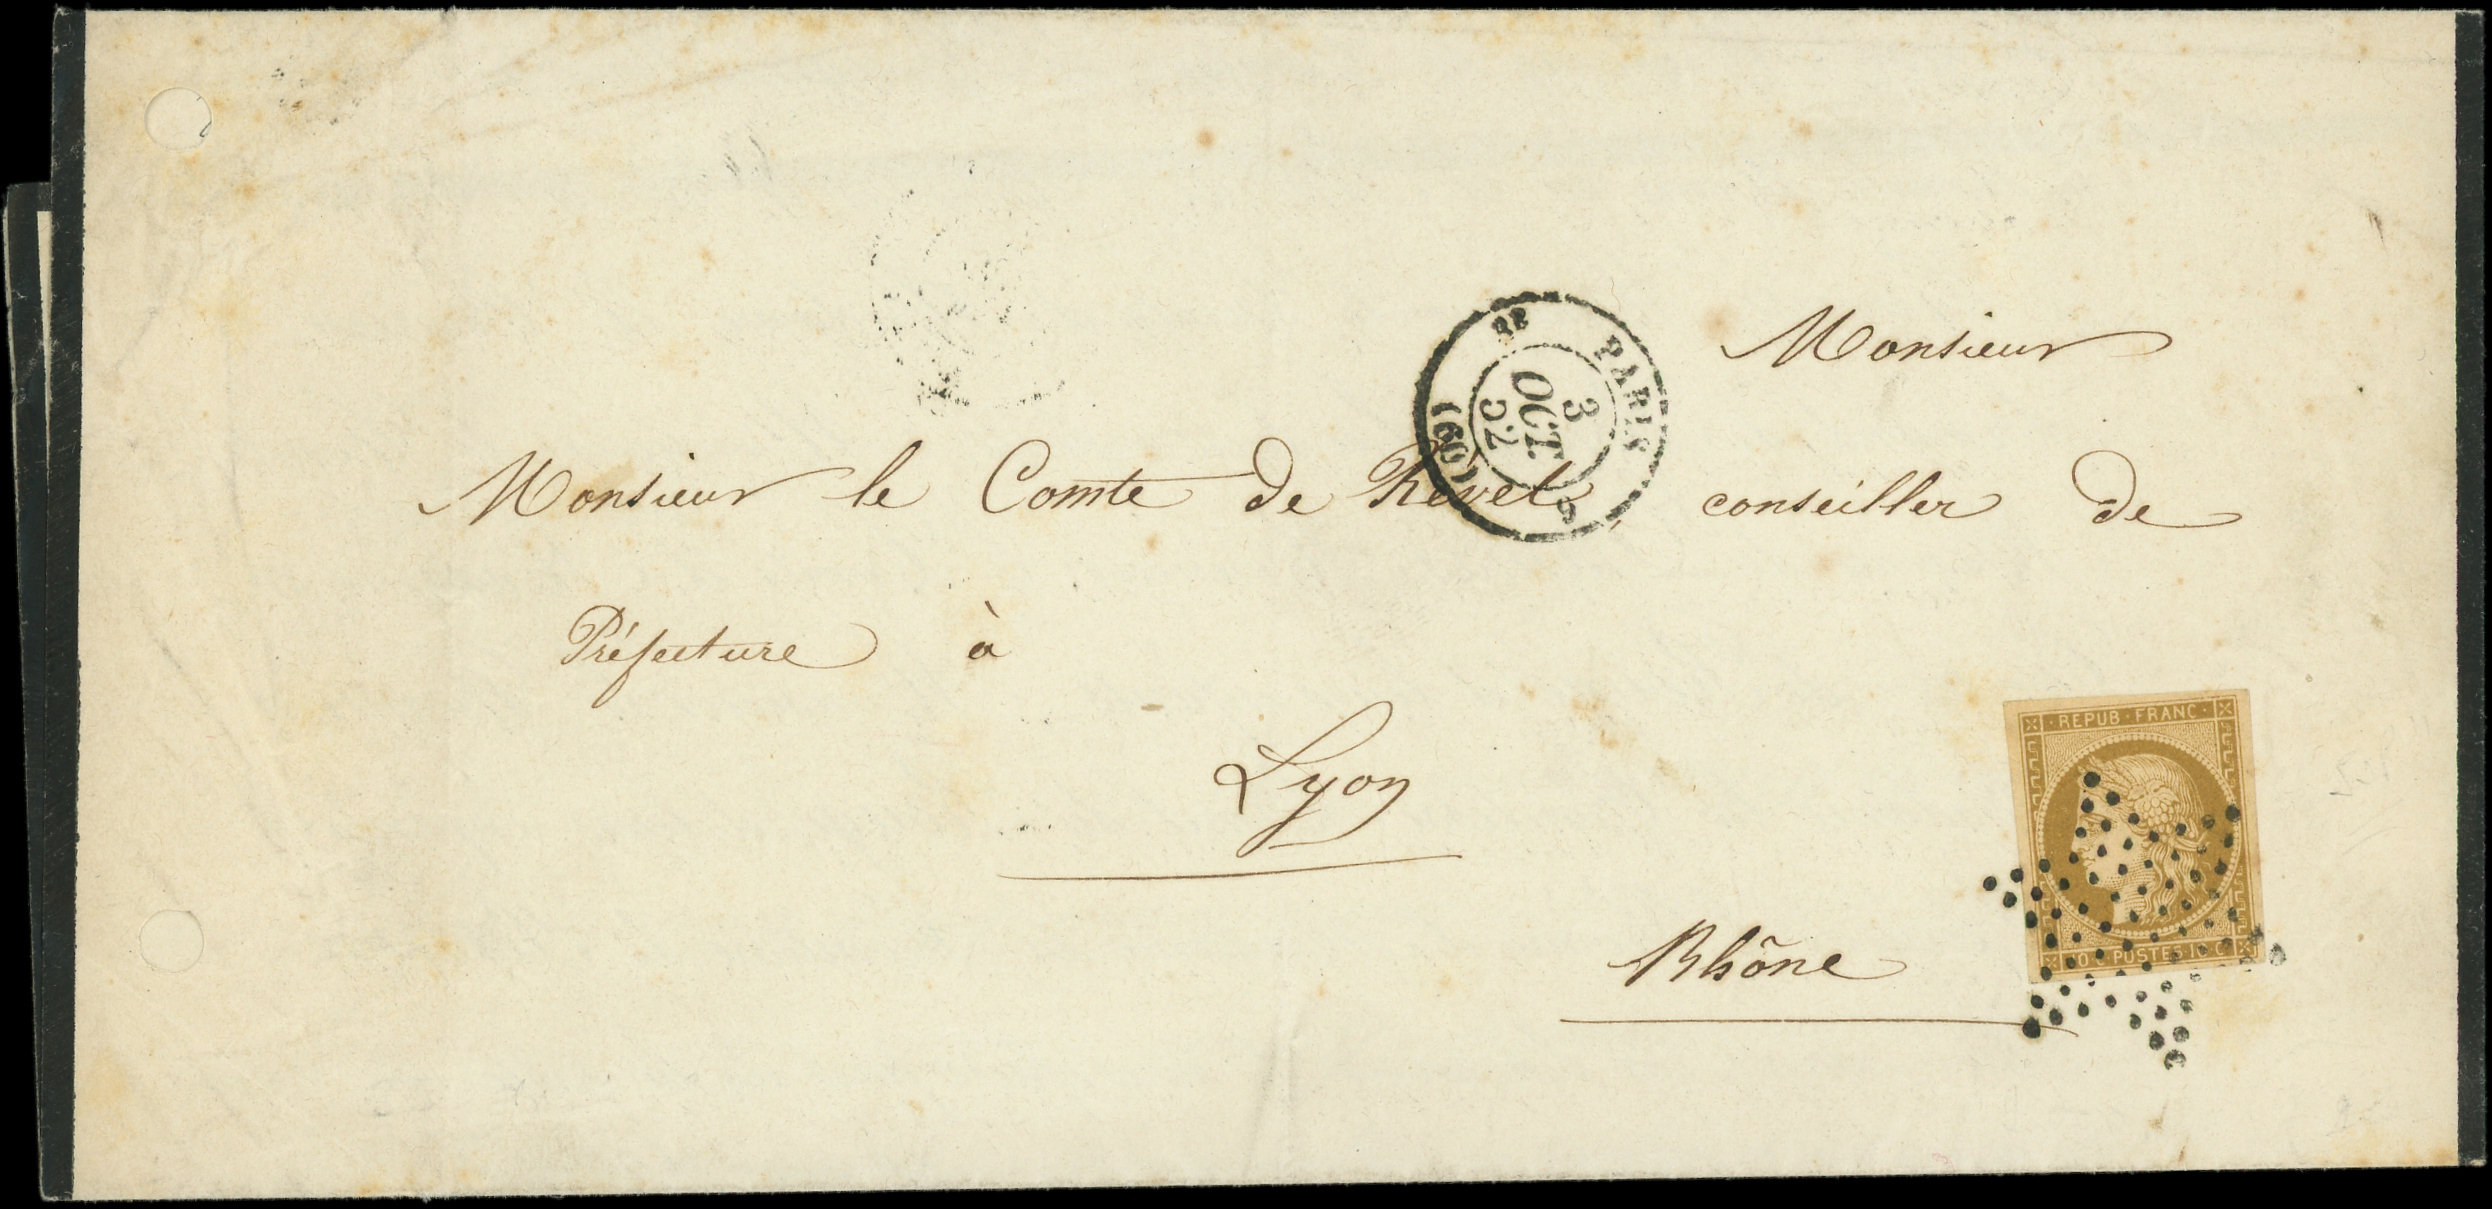 Monsieur
Monsieur le Comte de Revel, conseiller de
Préfecture à
Lyon
Rhône
PARIS
3
OCT.
52
(60)
REPUB·FRANC·
10 C POSTES 10 C